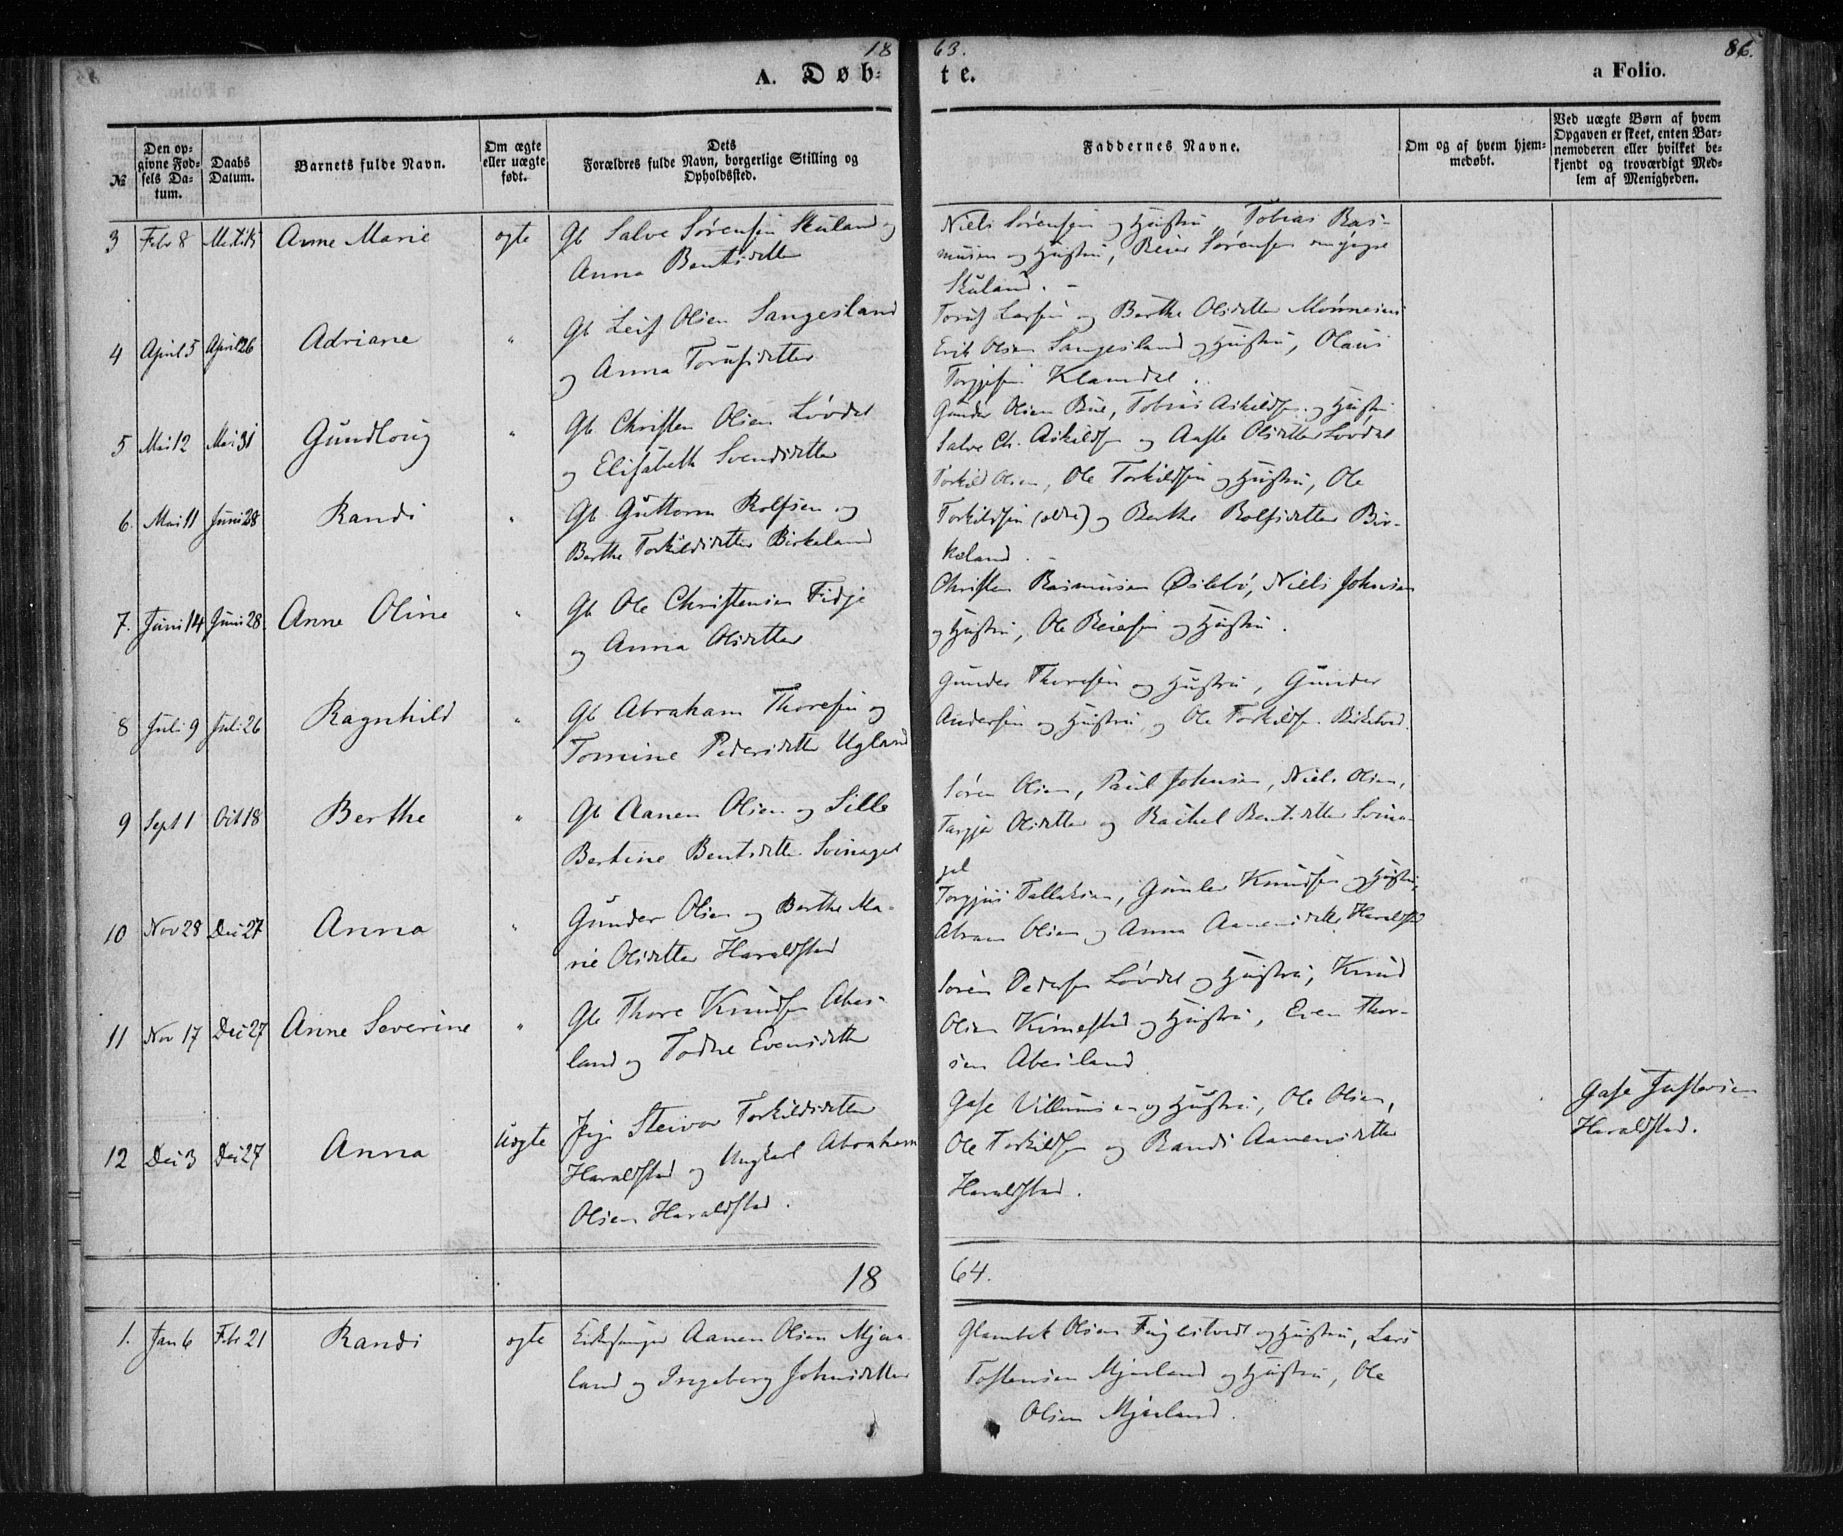 18 63. 86.
A. Døb- te. a Folio.
№
Den op-
givne Fød-
sels Da-
tum.
Daabs
Datum.
Barnets fulde Navn.
Om ægte
eller uægte
født.
Dets
Forældres fulde Navn, borgerlige Stilling og
Opholdssted.
Faddernes Navne.
Om og af hvem hjem-
medøbt.
Ved uægte Børn af hvem
Opgaven er skeet, enten Bar-
nemoderen eller hvilket be-
kjendt og troværdigt Med-
lem af Menigheden.
3 Febr 8 Anne Marie ægte Gb Salve Sørensen Skuland og
Anna Bentsdatter
Niels Sørensen og Hustru, Tobias Ras-
musen og Hustru, Reier Sørensen
Skuland. -
4 April 5 April 26 Adriane " Gb Leif Olsen Sangesland
og Anna Torufsdatter
Toruf Larsen og Berthe Olsdatter
Erik Olsen Sangesland og Hustru, Olaus
Torgjesen Klamdal.
5 Mai 12 Mai 31 Gundloug " Gb Christen Olsen Løvdal
og Elisabeth Svendsdatter
Gunder Olsen Bue, Tobias Askildsen og Hustru
Salve Ch. Askildsen og Aaste Olsdatter Løvdal
6. Mai 11 Juni 28 Randi " Gb Guttorm Rolfsen og
Berthe Torkildsdatter Birkeland
Torkild Olsen, Ole Torkildsen og Hustru, Ole
Torkildsen (ældre) og Berthe Rolfsdatter Bir-
keland.
7. Juni 14 Juni 28. Anne Oline " Gb Ole Christensen Fidje
og Anna Olsdatter
Christen Rasmussen Øslebø, Niels Johnsen
og Hustru, Ole Reiersen og Hustru.
8 Juli 9 Juli 26 Ragnhild " Gb Abraham Thoresen og
Tomine Pedersdatter Ugland
Gunder Thoresen og Hustru, Gunder
Andersen og Hustru og Ole Torkildsen
9 Sept 1 Oct 18 Berthe " Gb Aanen Olsen og Sille
Bertine Bentsdatter Svinagel
Søren Olsen, Paul Johnsen, Niels Olsen,
Targjer Olsdatter og Rachel Bentsdatter Svina-
gel
10 Nov 28 Dec 27 Anna " Gunder Olsen og Berthe Ma-
rie Olsdatter Haraldstad
Torgjus Tallaksen, Gunder Knudsen og Hustru,
Abram Olsen og Anna Aanensdatter Haraldstad
11 Nov 17 Dec 27 Anne Severine " Gb Thore Knudsen Abes-
land og Todne Evensdatter
Søren Pedersen Løvdal og Hustru, Knud
Olsen Kimestad og Hustru, Even Thor-
sen Abesland
12 Dec 3 Dec 27 Anna Uægte Pige Steivor Torkildsdatter
Haraldstad og Ungkarl Abraham
Olsen Haraldstad.
Gase Villumsen og Hustru, Ole Olsen,
Ole Torkildsen og Randi Aanensdatter
Haraldstad.
Gase
Haraldstad.
18 64.
1. Jan 6 Febr 21 Randi ægte Kirkesanger Aanen Olsen Mjaa-
land og Ingeborg Johnsdatter
Glambek Olsen Fuglestvedt og Hustru, Lars
Tostensen Mjaaland og Hustru, Ole
Olsen Mjaaland.